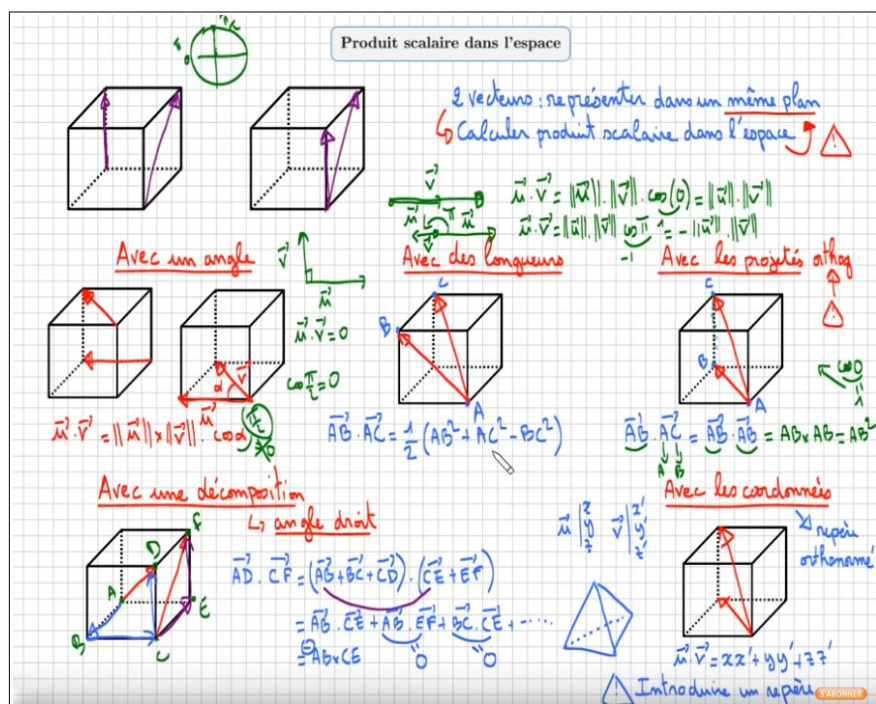 Produit scalaire dans l'espace
0 π π/2
2 vecteurs : représenter dans un même plan
↳ Calculer produit scalaire dans l'espace
u⃗ v⃗
u⃗.v⃗ = ||u⃗||.||v⃗||.cos(0) = ||u⃗||.||v⃗||
u⃗.v⃗ = ||u⃗||.||v⃗|| cos π = -||u⃗||.||v⃗||
-1
v⃗ π u⃗
Avec un angle
v⃗
u⃗
u⃗.v⃗ = 0
cos π/2 = 0
α v⃗
u⃗
u⃗.v⃗ = ||u⃗|| × ||v⃗||.cos α
Avec des longueurs
C
B
A
AB⃗.AC⃗ = 1/2 (AB² + AC² - BC²)
Avec les projetés orthog
C
B
A
cos 0
1
AB⃗.AC⃗ = AB⃗.AB⃗ = AB × AB = AB²
A B
Avec une décomposition
↳ angle droit
F
D
A
E
B
C
AD⃗.CF⃗ = (AB⃗+BC⃗+CD⃗).(CE⃗+EF⃗)
= AB⃗.CE⃗ + AB⃗.EF⃗ + BC⃗.CE⃗ + ......
= -AB×CE 0 0
Avec les coordonnées
u⃗ | x y z v⃗ | x' y' z'
repère
orthonormé
u⃗.v⃗ = xx' + yy' + zz'
Introduire un repère
S'ABONNER